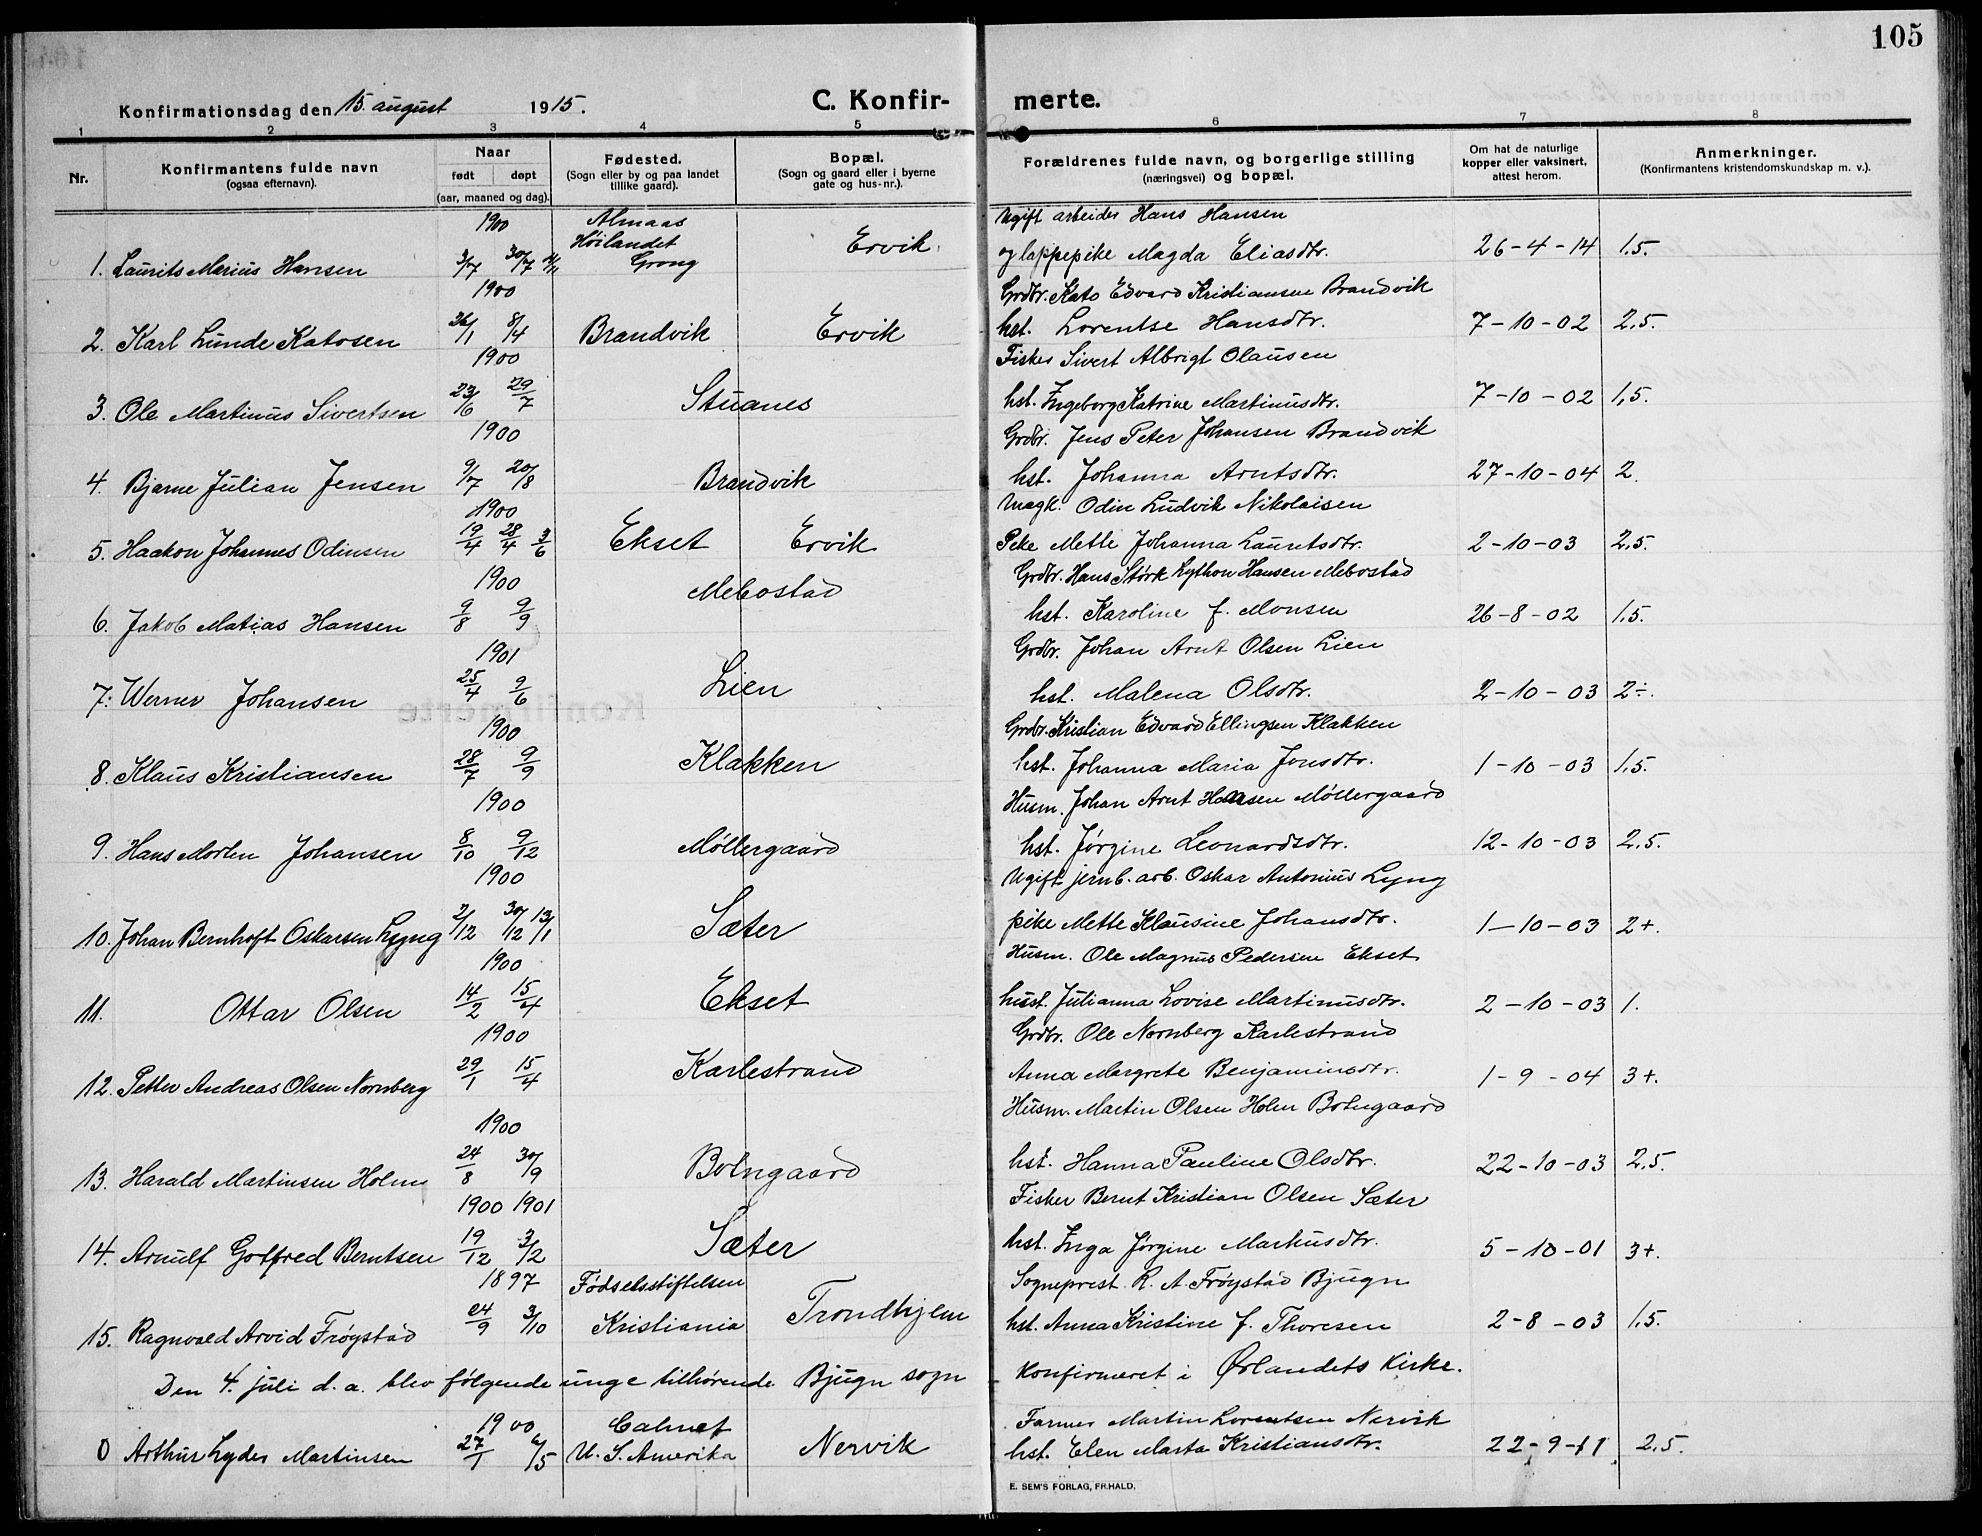 105
Konfirmationsdag den 15. august 1915.
C. Konfir- merte.
1 2 3 4 5 6 7 8
Nr.
Konfirmantens fulde navn
(ogsaa efternavn).
Naar
født døpt
(aar, maaned og dag).
Fødested.
(Sogn eller by og paa landet
tillike gaard).
Bopæl.
(Sogn og gaard eller i byerne
gate og hus-nr.).
Forældrenes fulde navn, og borgerlige stilling
(næringsvei) og bopæl.
Om hat de naturlige
kopper eller vaksinert,
attest herom.
Anmerkninger.
(Konfirmantens kristendomskundskap m. v.).
1900 Almaas Ugift arbeider Hans Hansen
Høilandet
1. Laurits Marius Hansen 3/7 30/7 Grong Ervik og lappepike Magda Eliasdtr. 26-4-14 1.5.
1900 Grdbr. Kato Edvard Kristiansen Brandvik
2. Karl Lunde Katosen 26/1 8/14 Brandvik Ervik hst. Lorentse Hansdtr. 7-10-02 2,5.
1900 Fisker Sivert Albrigt Olausen
3. Ole Martinus Sivertsen 23/6 29/7 Stuanes hst. Ingeborg Katrine Martinusdtr. 7-10-02 1,5.
1900 Grdbr. Jens Peter Johansen Brandvik
4. Bjarne Julian Jensen 9/7 20/8 Brandvik hst. Johanna Arntsdtr. 27-10-04 2.
1900 Ungk. Odin Ludvik Nikolaisen
5. Haakon Johannes Odinsen 19/4 28/4 3/6 Ekset Ervik Pike Mette Johanna Lauritsdtr. 2-10-03 2,5.
1900 Grdbr. Hans Størk Lython Hansen Mebostad
6. Jakob Matias Hansen 9/8 9/9 Mebostad hst. Karoline f. Monsen 26-8-02 1.5.
1901 Grdbr. Johan Arnt Olsen Lien
7. Werner Johansen 25/4 9/6 Lien hst. Malena Olsdtr. 2-10-03 2÷.
1900 Grdbr. Kristian Edvard Ellingsen Klakken
8. Klaus Kristiansen 28/7 9/9 Klakken hst. Johanna Maria Jonsdtr. 1-10-03 1.5.
1900 Husm. Johan Arnt Hansen Møllergaard
9. Hans Morten Johansen 8/10 9/12 Møllergaard hst. Jørgine Leonardsdtr. 12-10-03 2,5.
1900 Ugift jernb. arb. Oskar Antonius Lyng
10. Johan Bernhoft Oskarsen Lyng 2/12 30/12 13/1 Sæter pike Mette Klausine Johansdtr. 1-10-03 2+.
1900 Husm. Ole Magnus Pedersen Ekset
11. Ottar Olsen 14/2 15/4 Ekset hust. Julianna Lovise Martinusdtr. 2-10-03 1.
1900 Grdbr. Ole Nornberg Karlestrand
12. Petter Andreas Olsen Nornberg 29/1 15/4 Karlestrand Anna Margrete Benjaminsdtr. 1-9-04 3+.
1900 Husm. Martin Olsen Holm Botngaard
13. Harald Martinsen Holm 24/8 30/9 Botngaard hst. Hanna Pauline Olsdtr. 22-10-03 2,5.
1900 1901 Fisker Bernt Kristian Olsen Sæter
14. Arnulf Gotfred Berntsen 19/12 3/2 Sæter hst. Inga Jørgine Markusdtr. 5-10-01 3+.
1897 Fødselsstiftelsen Sogneprest R. A. Frøystad Bjugn
15. Ragnvald Arvid Frøystad 24/9 3/10 Kristiania Trondhjem hst. Anna Kristine f. Thoresen 2-8-03 1.5.
Den 4. juli d. a. blev følgende unge tilhørende Bjugn sogn konfirmeret i Ørlandets Kirke.
1900 Calmet Farmer Martin Lorentsen Nervik
0 Arthur Lyder Martinsen 27/1 6/5 U. S. Amerika Nervik hst. Elen Marta Kristiansdtr. 22-9-11 2,5.
E. SEM'S FORLAG, FR.HALD.